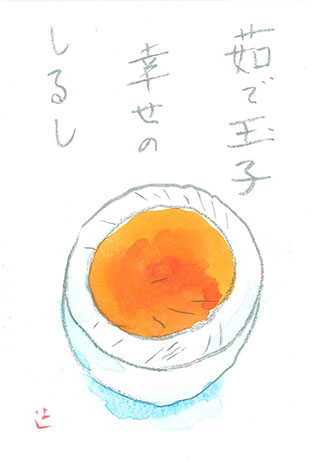 茹で玉子
幸せの
しるし